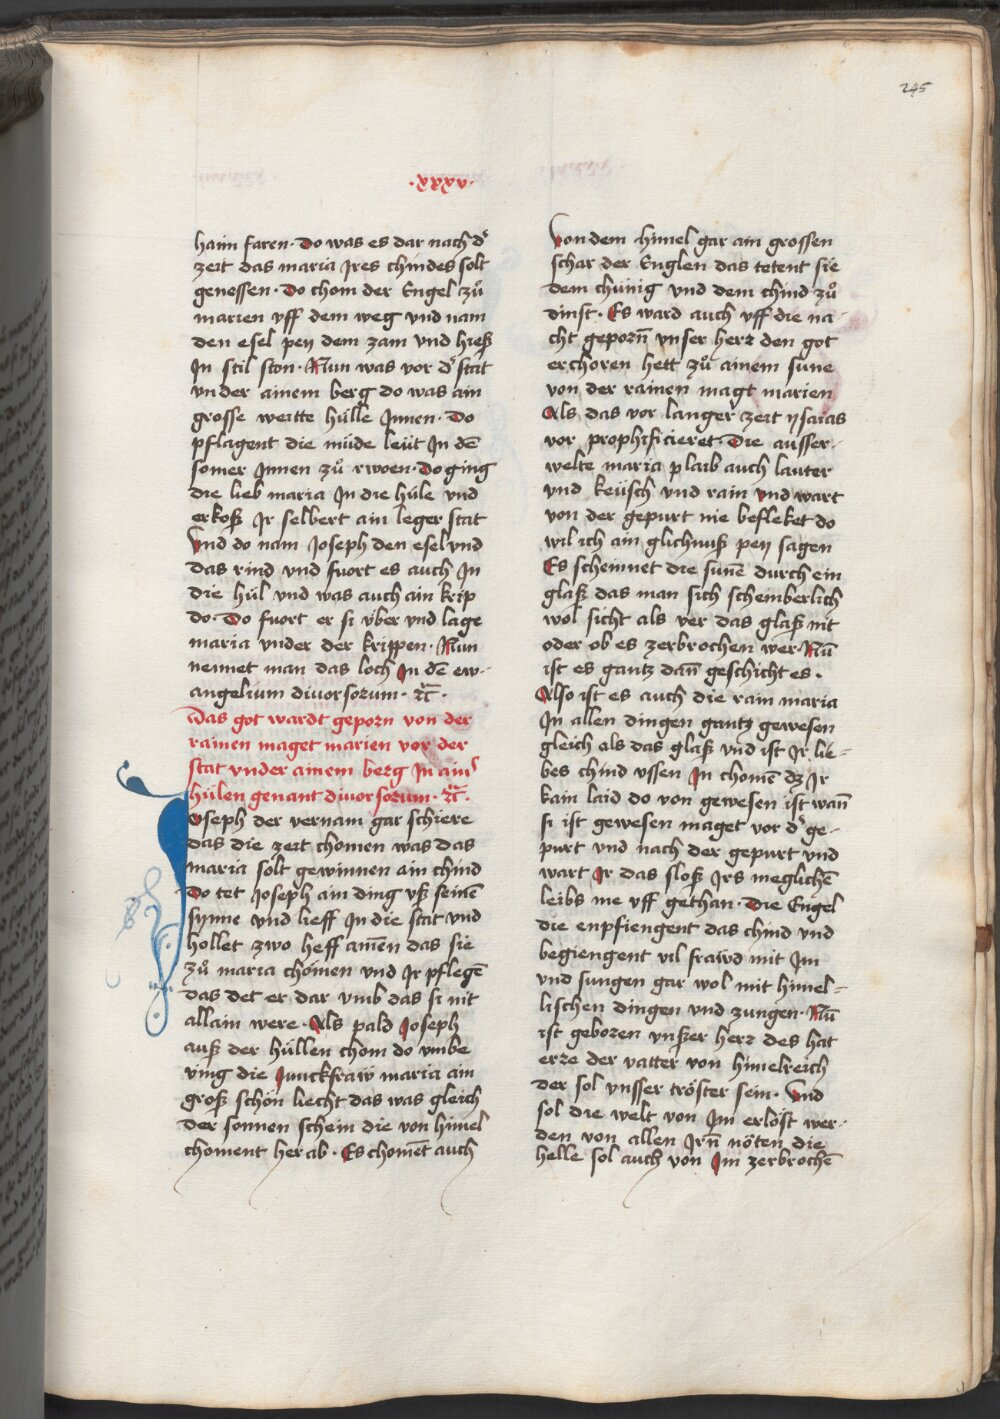 245
·xxxv·
haim faren· Do was es dar nach d᷑
zeit das maria Jres chindes solt
genessen· Do chom der Engel zů
marien vff dem weg vnd nam
den esel pey dem zam vnd hieß
In stil ston· Nun was vor d᷑ stat
vnder ainem berg do was ain
grosse weitte hülle Innen· Do
pflagent die müde leüt In dē
somer Innen zů rwoen· Do ging
die lieb maria In die hüle vnd
erkoß Ir selbert ain leger stat
Vnd do nam Joseph den esel vnd
das rind vnd fuort es auch In
die hül vnd was auch ain krip
do· Do fuort er si über vnd lage
maria vnder der krippen· Nun
nennet man das loch In dē ew-
angelium diuorsorum· ⁊c̄·
Das got wardt geporn von der
rainen maget marien vor der
stat vnder ainem berg In ain᷑
hülen genant diuorsorum· ⁊c̄·
Joseph der vernam gar schiere
das die zeit chomen was das
maria solt gewinnen ain chind
Do tet Joseph ain ding vß seinē
synne vnd lieff In die stat vnd
hollet zwo heff am̄en das sie
zů maria chömen vnd Ir pflegē
das det er dar vmb das si nit
allain were· Als pald Joseph
auß der hüllen chom do vmbe
ving die Junckfraw maria ain
groß schön liecht das was gleich
der sonnen schein die von himel
choment her ab· Es chomēt auch
Von dem himel gar ain grossen
schar der Englen das tetent sie
dem chünig vnd dem chind zů
dinst· Es ward auch vff die na-
cht geporn̄ vnser herr den got
erchoren hett zů ainem sune
von der rainen magt marien
Als das vor langer zeit ysaias
vor prophisicieret· Die ausser-
welte maria plaib auch lauter
vnd keüsch vnd rain vnd wart
von der gepurt nie befleket do
wil ich ain glichnuß pey sagen
Es scheinnet die sunē durch ein
glaß das man sich scheinberlich
wol sicht als ver das glaß nit
oder ob es zerbrochen wer· Nū
ist es gantz dan̄ geschicht es·
Also ist es auch die rain maria
In allen dingen gantz gewesen
gleich als das glaß vnd ist Ir lie-
bes chind vssen In chomē dz Ir
kain laid do von gewesen ist wan̄
si ist gewesen maget vor d᷑ ge-
purt vnd nach der gepurt vnd
wart Ir das sloß Irs meglichē
leibs nie vff gethan· Die Engel
die enpfiengent das chind vnd
begiengent vil frawd mit Im
vnd sungen gar wol mit himel-
lischen dingen vnd zungen· Nū
ist geboren vnßer herr des hat
erre der vatter von himelreich
der sol vnsser tröster sein· Vnd
sol die welt von Im erlöst wer-
den von allen Irn̄ nöten die
helle sol auch von Im zerbrochē